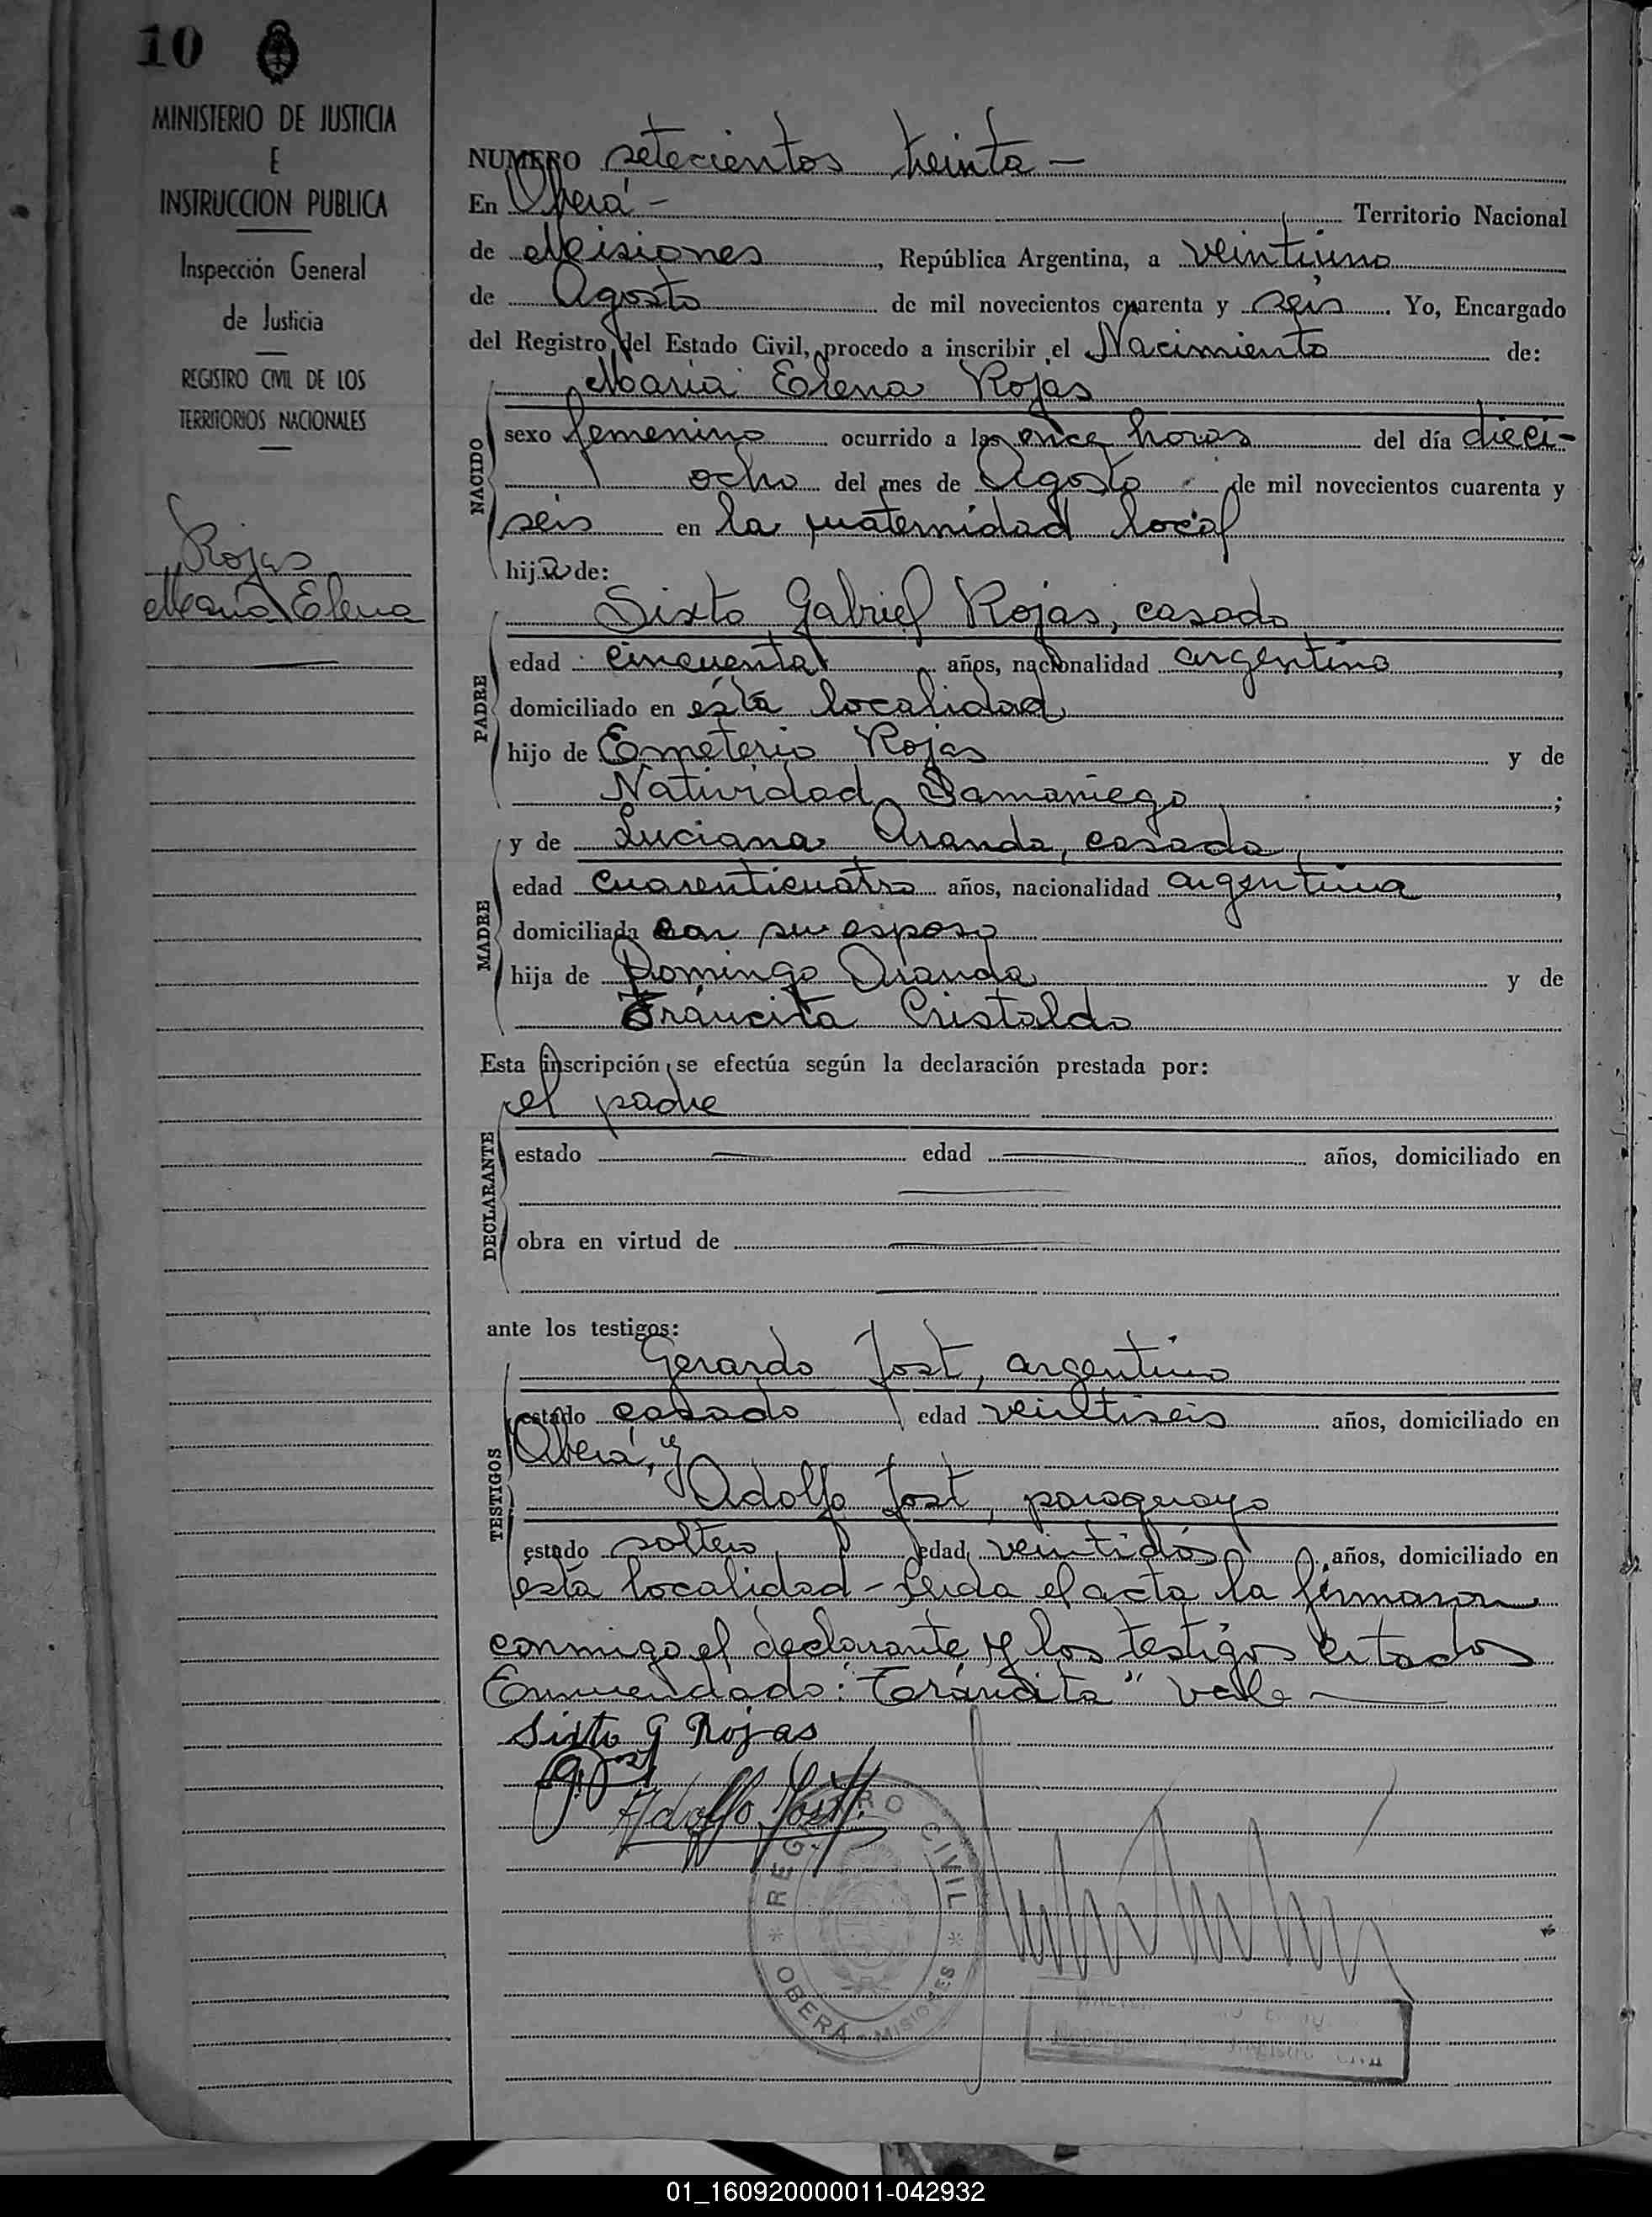 10
MINISTERIO DE JUSTICIA
E
INSTRUCCION PUBLICA
Inspección General
de Justicia
REGISTRO CIVIL DE LOS
TERRITORIOS NACIONALES
Rojas
Maria Elena
NUMERO setecientos treinta -
En Oberá - Territorio Nacional
de Misiones, República Argentina, a veintiuno
de Agosto de mil novecientos cuarenta y seis. Yo, Encargado
del Registro del Estado Civil, procedo a inscribir el Nacimiento de:
Maria Elena Rojas
NACIDO
sexo femenino ocurrido a las once horas del día dieci-
ocho del mes de Agosto de mil novecientos cuarenta y
seis en la maternidad local
hija de:
Sixto Gabriel Rojas, casado
PADRE
edad cincuenta años, nacionalidad argentino,
domiciliado en ésta localidad
hijo de Emeterio Rojas y de
Natividad Samaniego;
y de Luciana Aranda, casada,
MADRE
edad cuarenticuatro años, nacionalidad argentina,
domiciliada con su esposo
hija de Domingo Aranda y de
Tráncita Cristaldo
Esta inscripción se efectúa según la declaración prestada por:
el padre
DECLARANTE
estado edad años, domiciliado en
obra en virtud de
ante los testigos:
Gerardo Jost, argentino
TESTIGOS
estado casado edad veintiseis años, domiciliado en
Oberá, y
Adolfo Jost, paraguayo
estado soltero edad veintidós años, domiciliado en
esta localidad - Leida el acta la firmaron
conmigo el declarante y los testigos citados
Enmendado: "Tráncita" vale
Sixto G Rojas
Adolfo Jost
REGISTRO CIVIL
* OBERÁ - MISIONES *
01_160920000011-042932